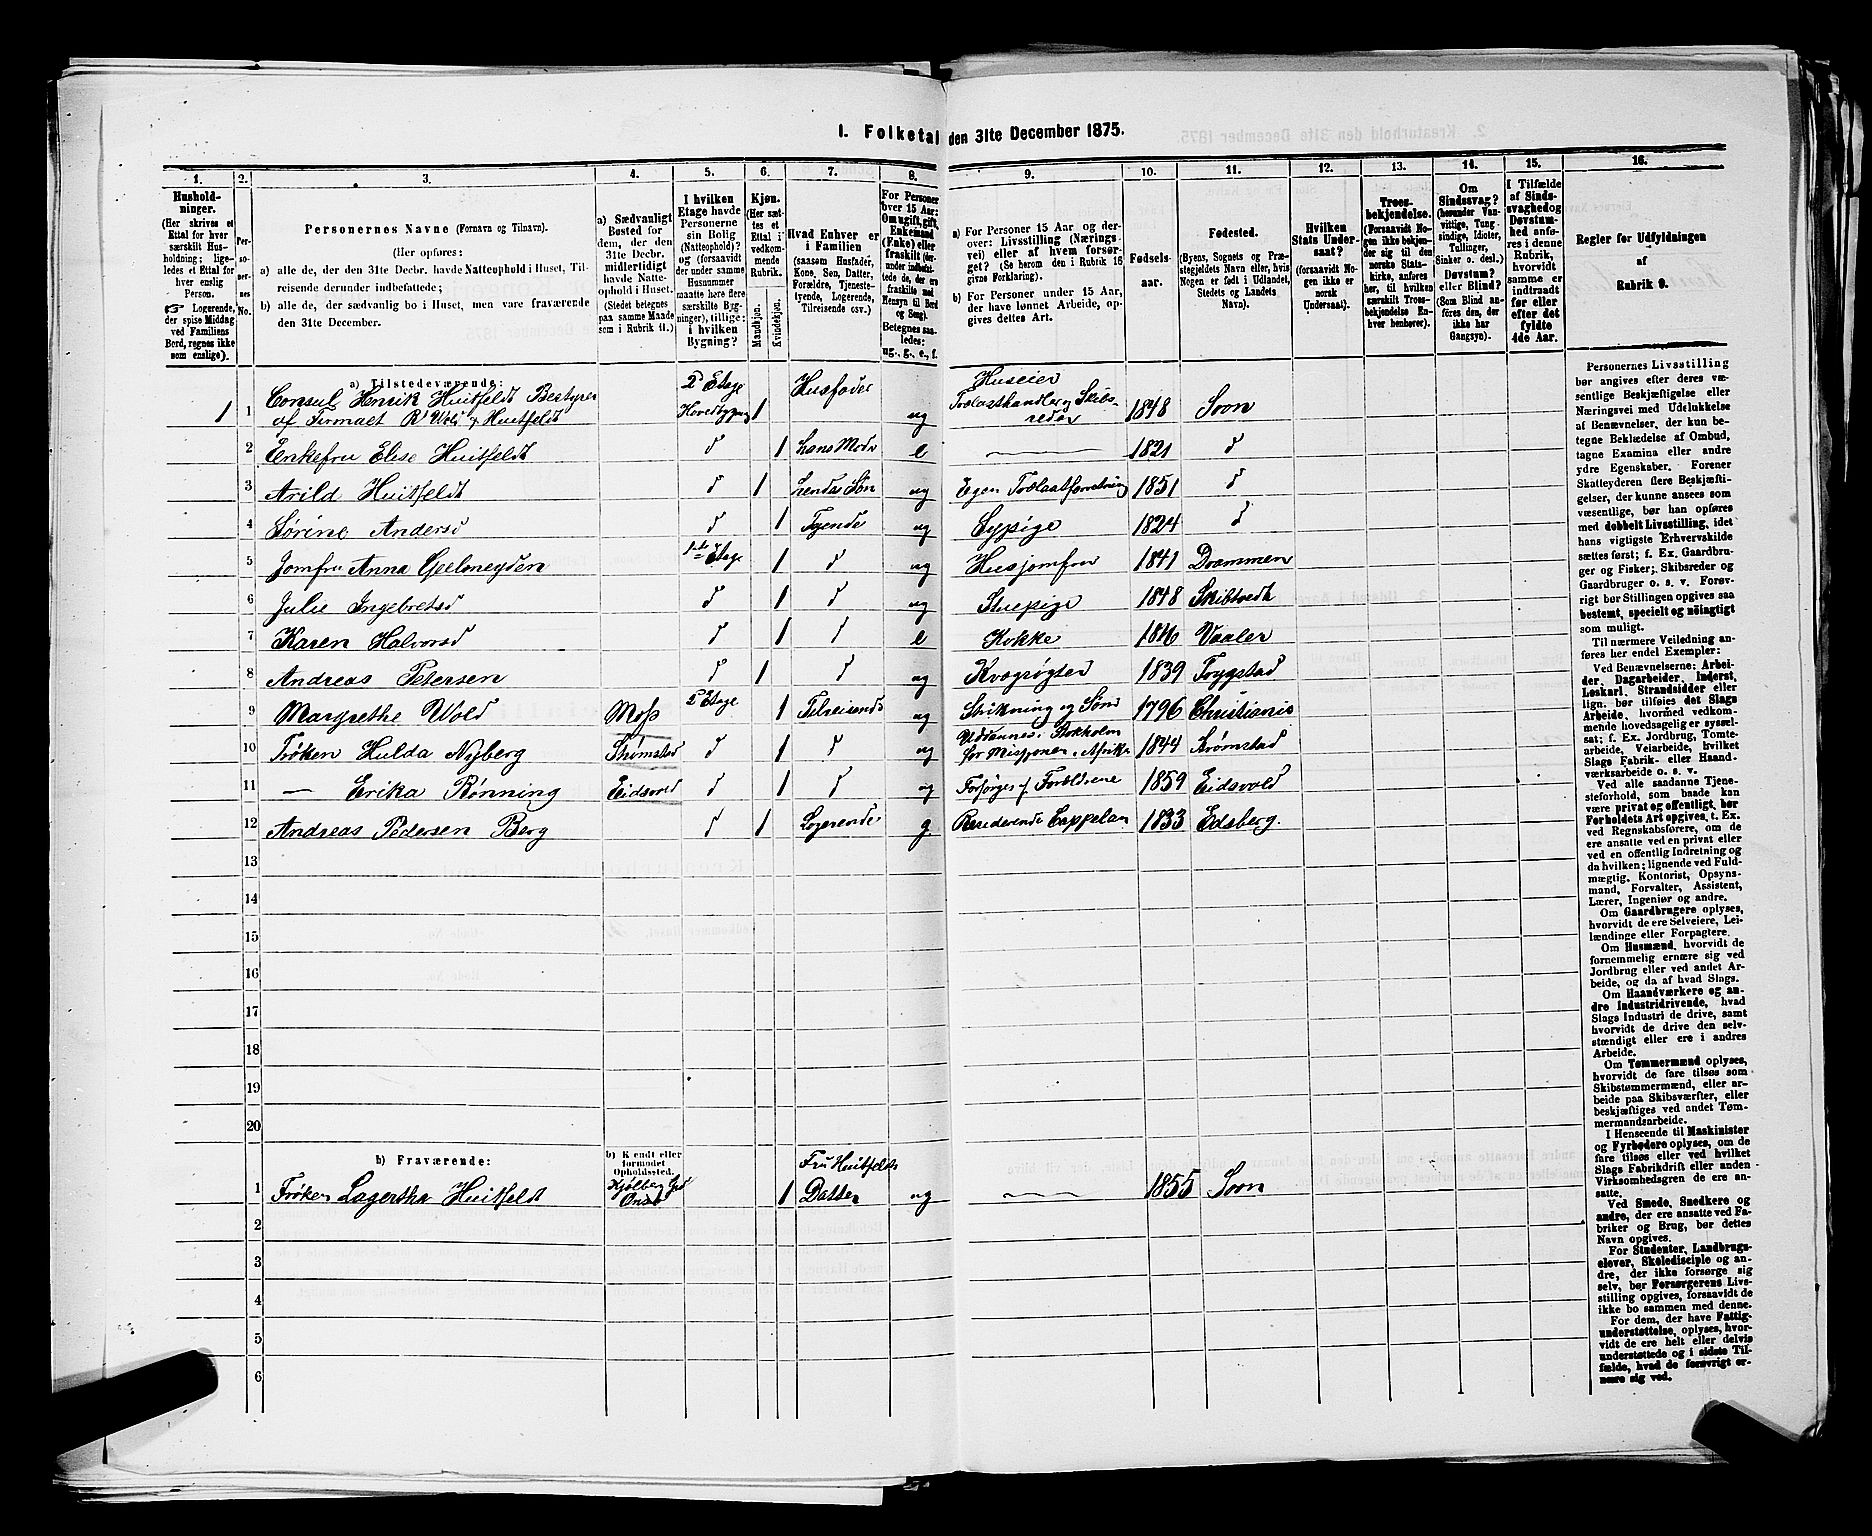 1. Folketal den 31te December 1875.
1.
2.
3.
4.
5.
6.
7.
8.
9.
10.
11.
12.
13.
14.
15.
16.
Hushold-
ninger.
(Her skrives et
Ettal for hver
særskilt Hus-
holdning; lige-
ledes et Ettal for
hver enslig
Person.
Logerende,
der spise Middag
ved Familiens
Bord, regnes ikke
som enslige).
Per-
so-
ner-
nes
No.
Personernes Navne (Fornavn og Tilnavn).
(Her opføres:
a) alle de, der den 31te Decbr. havde Natteophold i Huset, Til-
reisende derunder indbefattede;
b) alle de, der sædvanlig bo i Huset, men vare fraværende
den 31te December.
a) Sædvanligt
Bosted for
dem, der den
31te Decbr.
midlertidigt
havde Natte-
ophold i Huset.
(Stedet betegnes
paa samme Maade
som i Rubrik 11.)
I hvilken
Etage havde
Personerne
sin Bolig
(Natteophold)?
og (forsaavidt
der under samme
Husnummer
maatte høre flere
særskilte Byg-
ninger), tillige:
i hvilken
Bygning?
Kjøn.
(Her sæt-
tes et
Ettal i
vedkom-
mende
Rubrik.
Mandkjøn.
Kvindekjøn.
Hvad Enhver er
i Familien
(saasom Husfader,
Kone, Søn, Datter,
Forældre, Tjeneste-
tyende, Logerende,
Tilreisende osv.)
For Personer
over 15 Aar:
Om ugift, gift,
Enkemand
(Enke) eller
fraskilt (der-
under indbefat-
tede de, der ere
fraskilte med
Hensyn til Bord
og Seng).
Betegnes saa-
ledes:
ug., g., e., f.
a) For Personer 15 Aar og der-
over: Livsstilling (Nærings-
vei) eller af hvem forsør-
get? (Se herom den i Rubrik 16
givne Forklaring).
b) For Personer under 15 Aar,
der have lønnet Arbeide, op-
gives dettes Art.
Fødsels-
aar.
Fødested.
(Byens, Sognets og Præ-
stegjeldets Navn eller, hvis
Nogen er født i Udlandet,
Stedets og Landets
Navn).
Hvilken
Stats Under-
saat?
(forsaavidt No-
gen ikke er
norsk
Undersaat).
Troes-
bekjendelse.
(Forsaavidt No-
gen ikke bekjen-
der sig til den
norske Stats-
kirke, anføres
her, til hvilken
særskilt Troes-
bekjendelse En-
hver henhører).
Om
Sindssvag?
(herunder Van-
vittige, Tung-
sindige, Idioter,
Tullinger,
Sinker o. desl.)
Døvstum?
eller Blind?
(Som Blind an-
føres den, der
ikke har
Gangsyn).
I Tilfælde
af Sinds-
svaghed og
Døvstum-
hed anfø-
res i denne
Rubrik,
hvorvidt
samme er
indtraadt
før eller
efter det
fyldte
4de Aar.
Regler for Udfyldningen
af
Rubrik 9.
a) Tilstedeværende:
1 1 Consul Henrik Huitfeldt Bestyrer
af Firmaet R. Wold & Huitfeldt 2 Etage Hovedbygning 1 Husfader ug Huseier Trælasthandler og Skibs-
reder 1848 Soon
2 Enkefru Elise Huitfeldt d 1 hans Moder e — 1821 d
3 Arild Huitfeldt d 1 hendes Søn ug Egen Trælastforretning 1851 d
4 Sørine Andersd d 1 Tyende ug Sypige 1824 d
5 Jomfru Anna Geelmeyden 1ste Etage 1 d ug Husjomfru 1841 Drammen
6 Julie Ingebretsd d 1 d ug Stuepige 1848 Skibtvedt
7 Karen Halvorsd d 1 d e Kokke 1846 Vaaler
8 Andreas Petersen d 1 d ug Kvægrøgter 1839 Trygstad
9 Margrethe Wold Moss 2 Etage 1 Tilreisende ug Strikning og Søm 1796 Christiania
10 Frøken Hulda Nyberg Strømstad d 1 d ug Uddannes i Stokholm
for Missionen i Afrika 1844 Strømstad
11 — Erika Rønning Eidsvold d 1 d ug Forsørges af Forældrene 1859 Eidsvold
12 Andreas Pedersen Berg d 1 Logerende g Residerende Cappelan 1833 Edsberg.
13
14
15
16
17
18
19
20
b) Fraværende:
b) Kendt eller
formodet
Opholdssted.
1 Frøken Lagertha Huitfeldt Kjølberg Gd
Onsø 1 Fru Huitfeldts
Datter ug — 1855 Soon
2
3
4
5
6
Personernes Livsstilling
bør angives efter deres væ-
sentlige Beskjæftigelse eller
Næringsvei med Udelukkelse
af Benævnelser, der kun be-
tegne Beklædelse af Ombud,
tagne Examina eller andre
ydre Egenskaber. Forener
Skatteyderen flere Beskjæfti-
gelser, der kunne ansees som
væsentlige, bør han opføres
med dobbelt Livsstilling, idet
hans vigtigste Erhvervskilde
sættes først; f. Ex. Gaardbru-
ger og Fisker; Skibsreder og
Gaardbruger o. s. v. Forøv-
rigt bør Stillingen opgives saa
bestemt, specielt og nøiagtigt
som muligt.
Til nærmere Veiledning an-
føres her endel Exempler:
Ved Benævnelserne: Arbei-
der, Dagarbeider, Inderst,
Løskarl, Strandsidder eller
lign. bør tilføies det Slags
Arbeide, hvormed vedkom-
mende hovedsagelig er syssel-
sat; f. Ex. Jordbrug, Tomte-
arbeide, Veiarbeide, hvilket
Slags Fabrik- eller Haand-
værksarbeide o. s. v.
Ved alle saadanne Tjene-
steforhold, som baade kan
være privat og offentligt, bør
Forholdets Art opgives, t. Ex.
ved Regnskabsførere, om de
ere ansatte ved en privat eller
ved en offentlig Indretning og
da hvilken; lignende ved Fuld-
mægtig, Kontorist, Opsyns-
mand, Forvalter, Assistent,
Lærer, Ingeniør og andre.
Om Gaardbrugere oplyses,
hvorvidt de ere Selveiere, Lei-
lændinge eller Forpagtere.
Om Husmænd, hvorvidt de
fornemmelig ernære sig ved
Jordbrug eller ved andet Ar-
beide, og da af hvad Slags.
Om Haandværkere og an-
dre Industridrivende, hvad
Slags Industri de drive, samt
hvorvidt de drive den selv-
stændigt eller ere i andres
Arbeide.
Om Tømmermænd oplyses,
hvorvidt de fare tilsøs som
Skibstømmermænd, eller ar-
beide paa Skibsværfter, eller
beskjæftiges ved andet Tøm-
mermandsarbeide.
I Henseende til Maskinister
og Fyrbødere oplyses, om de
fare tilsøs eller ved hvilket
Slags Fabrikdrift eller anden
Virksomhedsgren de ere an-
satte.
Ved Smede, Snedkere og
andre, der ere ansatte ved Fa-
briker og Brug, bør dettes
Navn opgives.
For Studenter, Landbrugs-
elever, Skoledisciple og an-
dre, der ikke forsørge sig
selv, bør Forsørgerens Livs-
stilling opgives, forsaavidt de
ikke bo sammen med denne.
For dem, der have Fattig-
understøttelse, oplyses, hvor-
vidt de ere helt eller delvis
understøttede og i sidste Til-
fælde, hvad de forøvrigt er-
nære sig ved.